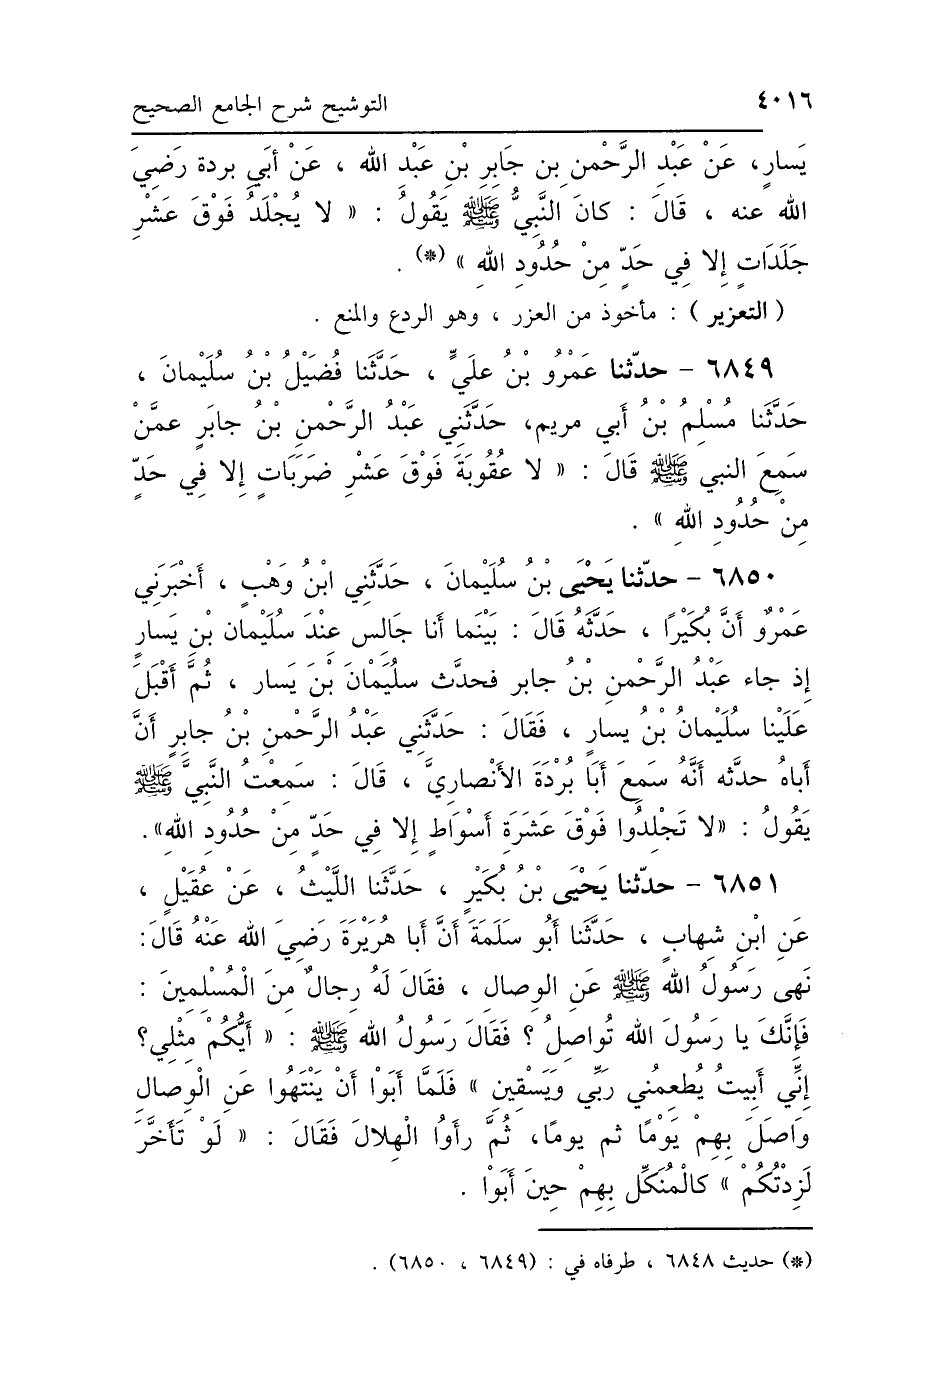 ٤٠١٦ التوشيح شرح الجامع الصحيح
يَسارٍ، عَنْ عَبْدِ الرَّحْمنِ بنِ جَابِرِ بْنِ عَبْدِ الله ، عَنْ أبَي بردة رَضِيَ
الله عنه ، قَالَ : كانَ النَّبِيُّ ﷺ يَقُولُ : « لا يُجْلَدُ فَوْقَ عَشْرِ
جَلَدَاتٍ إلا فِي حَدٍّ مِنْ حُدُودِ اللهِ » (*) .
( التعزير ) : مأخوذ من العزر ، وهو الردع والمنع .
٦٨٤٩ - حدّثنا عَمْرُو بْنُ علَيٍّ ، حَدَّثَنا فُضَيْلُ بْنُ سُلَيْمانَ ،
حَدَّثَنا مُسْلِمُ بْنُ أَبي مريم، حَدَّثَنِي عَبْدُ الرَّحْمنِ بْنُ جابَرٍ عمَّنْ
سَمِعَ النبي ﷺ قَالَ : « لا عُقُوبَةَ فَوْقَ عَشْرِ ضَرَبَاتٍ إلا فِي حَدٍّ
مِنْ حُدُودِ اللهِ » .
٦٨٥٠ - حدّثنا يَحْيَى بْنُ سُلَيْمانَ ، حَدَّثَنِي ابْنُ وَهْبٍ ، أَخْبَرَنِي
عَمْرٌو أَنَّ بُكَيْرًا ، حَدَّثَهُ قَالَ : بَيْنَما أنا جَالِس عِنْدَ سُلَيْمان بْنِ يَسارٍ
إذ جاء عَبْدُ الرَّحْمنِ بْنُ جابر فحدث سلُيَمْانَ بْنَ يَسار ، ثُمَّ أَقْبَلَ
عَلَيْنا سُلَيْمانُ بْنُ يسارٍ ، فَقَالَ : حَدَّثَنِي عَبْدُ الرَّحْمنِ بْنُ جابِرٍ أَنَّ
أَباهُ حدثَّه أنَّهُ سَمِعَ أَبَا بُرْدَةَ الأَنْصاريَّ ، قَالَ : سَمِعْتُ النَّبِيَّ ﷺ
يَقُولُ : «لا تَجْلِدُوا فَوْقَ عَشَرَةِ أسْوَاطٍ إلا فِي حَدٍّ مِنْ حُدُودِ اللهِ».
٦٨٥١ - حدّثنا يَحْيَى بْنُ بُكَيْرٍ ، حَدَّثَنا اللَّيْثُ ، عَنْ عُقَيْلٍ ،
عَنِ ابْنِ شهابٍ ، حَدَّثَنا أَبُو سَلَمَةَ أَنَّ أَبا هُرَيْرَةَ رَضِيَ الله عَنْهُ قَالَ:
نَهى رَسُولُ الله ﷺ عَنِ الوِصالِ ، فقَالَ لَهُ رِجالٌ مِنَ الْمُسْلِمِينَ :
فَإِنَّكَ يا رَسُولَ الله تُواصِلُ ؟ فَقَالَ رَسُولُ الله ﷺ : « أَيُّكُمْ مِثْلِي؟
إنِّي أَبِيتُ يُطْعِمُنِي رَبِّي وَيَسْقِينِ » فَلَمَّا أَبَوْا أَنْ يَنْتَهُوا عَنِ الْوِصالِ
وَاصَلَ بِهِمْ يَوْمًا ثم يومًا، ثُمَّ رأَوُا الْهِلالَ فَقَالَ : « لَوْ تَأَخَّرَ
لَزِدْتُكُمْ » كالْمُنَكِّلِ بِهِمْ حِينَ أَبَوْا .
(*) حديث ٦٨٤٨ ، طرفاه في : (٦٨٤٩ ، ٦٨٥٠) .